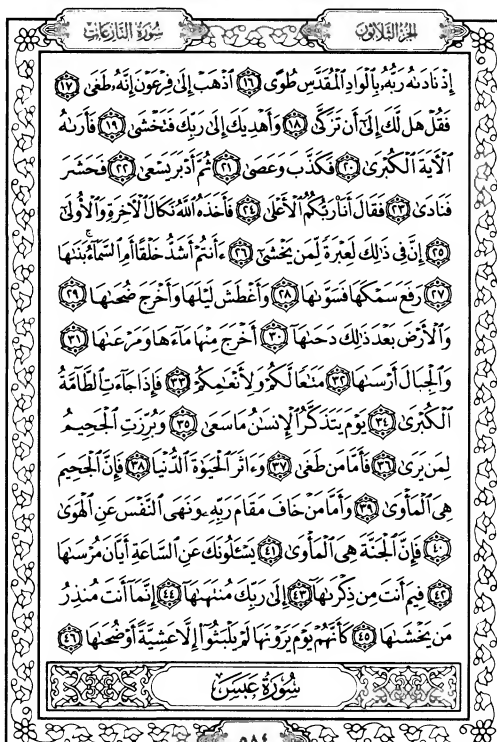 سُورَةُ النَّازِعَاتِ الجُزْءُ الثَّلَاثُونَ
إِذْ نَادَىٰهُ رَبُّهُۥ بِٱلْوَادِ ٱلْمُقَدَّسِ طُوًى ﴿١٦﴾ ٱذْهَبْ إِلَىٰ فِرْعَوْنَ إِنَّهُۥ طَغَىٰ ﴿١٧﴾
فَقُلْ هَل لَّكَ إِلَىٰٓ أَن تَزَكَّىٰ ﴿١٨﴾ وَأَهْدِيَكَ إِلَىٰ رَبِّكَ فَتَخْشَىٰ ﴿١٩﴾ فَأَرَىٰهُ
ٱلْـَٔايَةَ ٱلْكُبْرَىٰ ﴿٢٠﴾ فَكَذَّبَ وَعَصَىٰ ﴿٢١﴾ ثُمَّ أَدْبَرَ يَسْعَىٰ ﴿٢٢﴾ فَحَشَرَ
فَنَادَىٰ ﴿٢٣﴾ فَقَالَ أَنَا۠ رَبُّكُمُ ٱلْأَعْلَىٰ ﴿٢٤﴾ فَأَخَذَهُ ٱللَّهُ نَكَالَ ٱلْـَٔاخِرَةِ وَٱلْأُولَىٰٓ
﴿٢٥﴾ إِنَّ فِى ذَٰلِكَ لَعِبْرَةً لِّمَن يَخْشَىٰٓ ﴿٢٦﴾ ءَأَنتُمْ أَشَدُّ خَلْقًا أَمِ ٱلسَّمَآءُ ۚ بَنَىٰهَا
﴿٢٧﴾ رَفَعَ سَمْكَهَا فَسَوَّىٰهَا ﴿٢٨﴾ وَأَغْطَشَ لَيْلَهَا وَأَخْرَجَ ضُحَىٰهَا ﴿٢٩﴾
وَٱلْأَرْضَ بَعْدَ ذَٰلِكَ دَحَىٰهَآ ﴿٣٠﴾ أَخْرَجَ مِنْهَا مَآءَهَا وَمَرْعَىٰهَا ﴿٣١﴾
وَٱلْجِبَالَ أَرْسَىٰهَا ﴿٣٢﴾ مَتَـٰعًا لَّكُمْ وَلِأَنْعَـٰمِكُمْ ﴿٣٣﴾ فَإِذَا جَآءَتِ ٱلطَّآمَّةُ
ٱلْكُبْرَىٰ ﴿٣٤﴾ يَوْمَ يَتَذَكَّرُ ٱلْإِنسَـٰنُ مَا سَعَىٰ ﴿٣٥﴾ وَبُرِّزَتِ ٱلْجَحِيمُ
لِمَن يَرَىٰ ﴿٣٦﴾ فَأَمَّا مَن طَغَىٰ ﴿٣٧﴾ وَءَاثَرَ ٱلْحَيَوٰةَ ٱلدُّنْيَا ﴿٣٨﴾ فَإِنَّ ٱلْجَحِيمَ
هِىَ ٱلْمَأْوَىٰ ﴿٣٩﴾ وَأَمَّا مَنْ خَافَ مَقَامَ رَبِّهِۦ وَنَهَى ٱلنَّفْسَ عَنِ ٱلْهَوَىٰ
﴿٤٠﴾ فَإِنَّ ٱلْجَنَّةَ هِىَ ٱلْمَأْوَىٰ ﴿٤١﴾ يَسْـَٔلُونَكَ عَنِ ٱلسَّاعَةِ أَيَّانَ مُرْسَىٰهَا
﴿٤٢﴾ فِيمَ أَنتَ مِن ذِكْرَىٰهَآ ﴿٤٣﴾ إِلَىٰ رَبِّكَ مُنتَهَىٰهَآ ﴿٤٤﴾ إِنَّمَآ أَنتَ مُنذِرُ
مَن يَخْشَىٰهَا ﴿٤٥﴾ كَأَنَّهُمْ يَوْمَ يَرَوْنَهَا لَمْ يَلْبَثُوٓا۟ إِلَّا عَشِيَّةً أَوْ ضُحَىٰهَا ﴿٤٦﴾
سُورَةُ عَبَسَ
٥٨٤